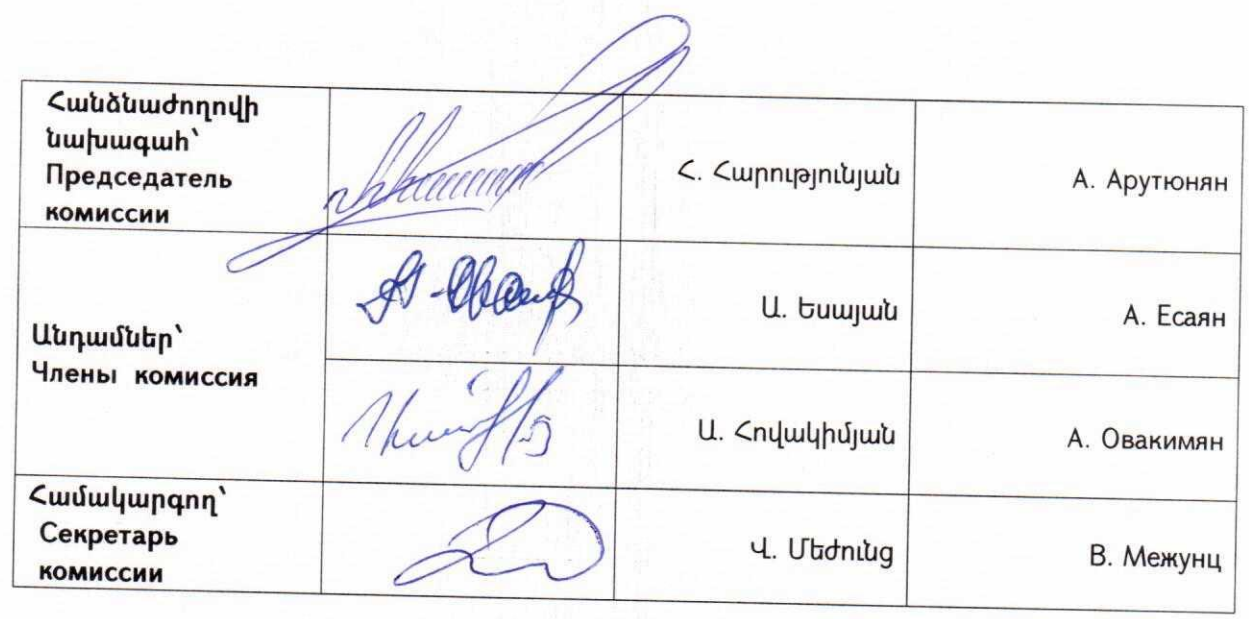 Հանձնաժողովի
նախագահ՝
Председатель
комиссии
Հ. Հարությունյան
А. Арутюнян
Անդամներ՝
Члены комиссия
Ա. Եսայան
А. Есаян
Ա. Հովակիմյան
А. Овакимян
Համակարգող՝
Секретарь
комиссии
Վ. Մեժունց
В. Межунц